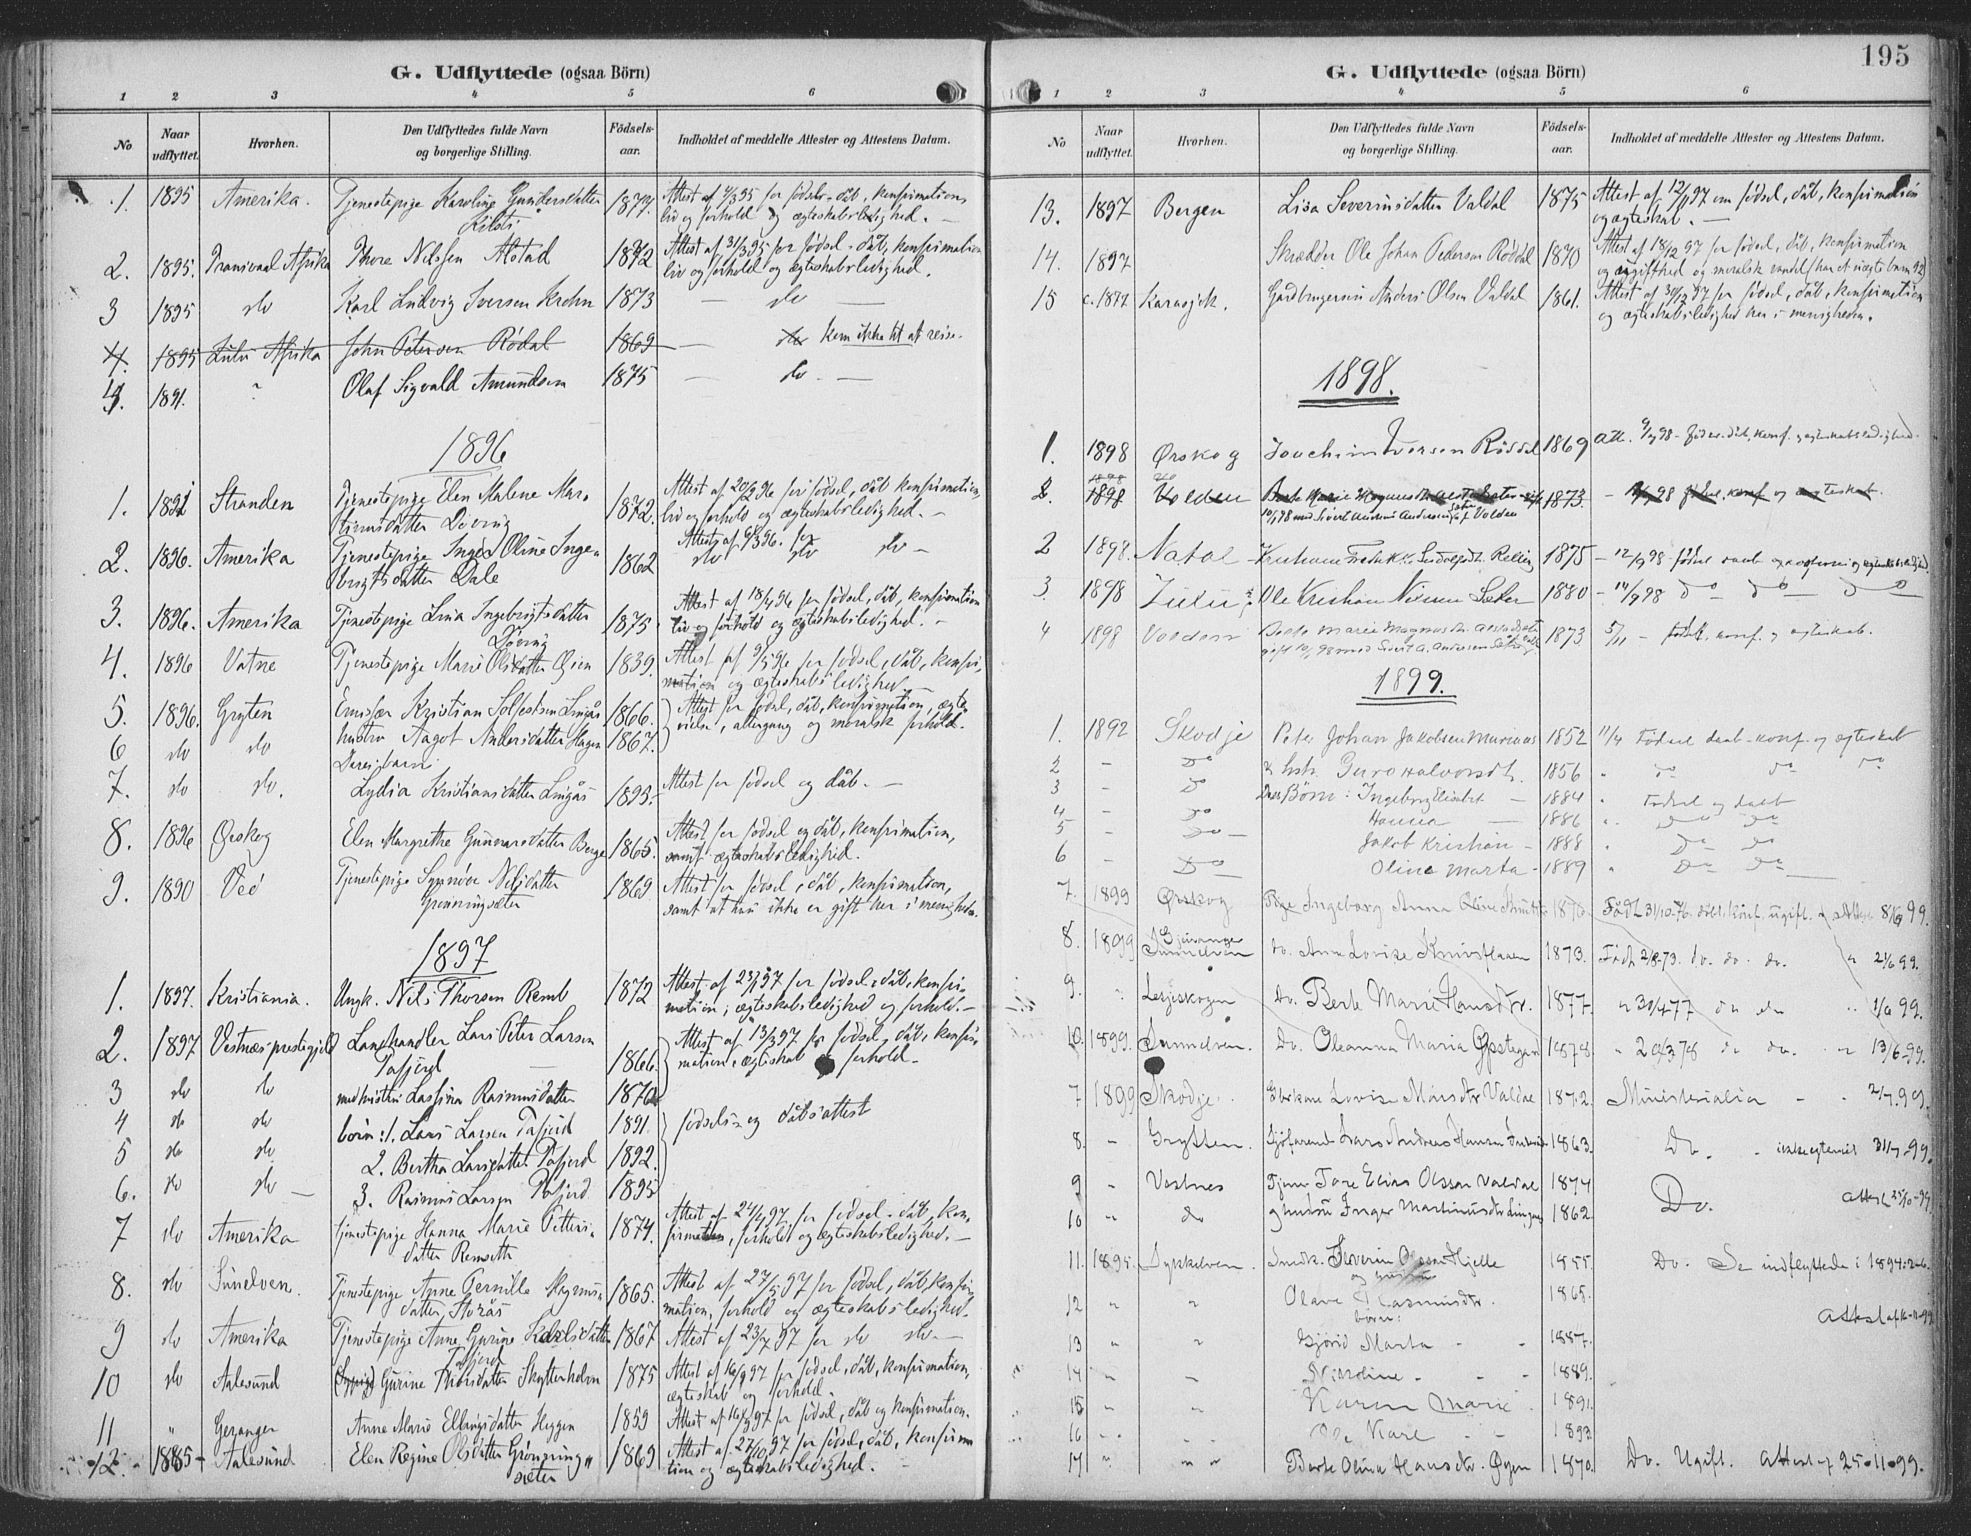 G. Udflyttede (ogsaa Börn)
1 2 3 4 5 6
No Naar udflyttet. Hvorhen. Den Udflyttedes fulde Navn og borgerlige Stilling. Födsels-aar. Indholdet af meddelte Attester og Attestens Datum.
1. 1895 Amerika. Tjenestepige Karoline Gundersdatter 1877. Attest af for födsels-dåb, konfirmations
liv og forhold og ægteskabsledighed. —
2. 1895. Transvaal Afrika Thore Nilssen Alstad 1872 Attest af 31/3 95 for födsel-dåb, konfirmation
liv og forhold og ægteskabsledighed.
3 1895 do Karl Ludvig Iversen Krohn 1873 — do —
4. 1895 Zulu Afrika John Petersen Rödal 1869 — do kom ikke til at reise.
4. 1891. " Olaf Sigvald Amundsen 1875 — do. —
1896
1. Stranden Tjenestepige Elen Malene Mar- 1872. Attest af 20/2 96 for födsel, dåb konfirmation,
tinusdatter Döving liv og forhold og ægteskabsledighed. —
2. 1896. Amerika Tjenestepige Inge- 1862 Attest af 6/3 96. for
brigtsdatter Dale do do do —
3. 1896. Amerika Tjenestepige Lina Ingebrigtsdatter 1875 Attest af 18/4 96 for födsel, dåb, konfirmation
Döving liv og forhold og ægteskabsledighed. —
4. 1896 Vatne Tjenestepige Marie Olsdatter Öien 1839. Attest af 9/5 96 for födsel, dåb, konfir-
mation og ægteskabsledighed —
5. 1896. Gryten Kristian 1866. Attest for födsel, dåb, konfirmation, ægte
6 do do hustru Aagot Andersdatter Hagen 1867. altergang og moralsk forhold.
Deres barn:
7. do do. Lydia Kristiansdatter 1893. Attest for födsel og dåb. —
8. 1896 Örskog Elen Margrethe Gunnarsdatter Berge 1865. Attest for födsel og dåb, konfirmation,
samt ægteskabsledighed.
9. 1890 Veö Tjenestepige Synnöve Nilsdatter 1869. Attest for födsel, dåb, konfirmation,
samt at hun ikke er gift her i menigheden.
1897
1. 1897. Kristiania. Ungk. Nils Thorsen Remb 1872 Attest af 23/1 97 for födsel, dåb, konfir-
mation, ægteskabsledighed og forhold. —
2. 1897 Vestnæs prestegjeld Landhandler Lars Peter Larsen 1866. Attest af 13/3 97 for födsel, dåb, konfir-
Tafjord mation, ægteskab og forhold —
3 do do med hustru Rasmusdatter 1870
4 do do börn: 1. Lars Larsen Tafjord 1891. födsels- og dåbsattest
5 do do. 2. Bertha Larsdatter Tafjord 1892.
6. do do — 3. Rasmus Larsen Tafjord 1895
7 do Amerika Tjenestepige Hanna Marie Petters- 1874. Attest af 24/4 97, for födsel-dåb, kon-
datter Remseth firmation, forhold og ægteskabsledighed. —
8. do Sunelven. Tjenestepige Anne Pernille Magnus- 1865. Attest af 27/5 97 for födsel, dåb, konfir
datter Storås mation, forhold og ægteskabsledighed. —
9 do Amerika Tjenestepige Anne Gurine Karlsdatter 1867 Attest af 23/7 97 for do do —
Tafjord
10 do Aalesund Gurine Thorsdatter Skytterholm 1875 Attest af 16/9 97 for födsel, dåb, konfirmation,
ægteskab og forhold.
11 " Geranger Anne Marie Ellingsdatter Heggen 1859 Attest af for födsel, dåb og konfirmation.
12. 1885 Aalesund Elen Regine Olsdatter Grönning- 1869 Attest af 27/10 97 for födsel, dåb, konfirma
sæter tion og ægteskabsledighed. —
195
G. Udflyttede (ogsaa Börn)
1 2 3 4 5 6
No Naar udflyttet. Hvorhen. Den Udflyttedes fulde Navn og borgerlige Stilling. Födsels-aar. Indholdet af meddelte Attester og Attestens Datum.
13. 1897 Bergen Lisa Severinsdatter Valdal 1875 Attest af 12/11 97 om födsel, dåb, konfirmation
og ægteskab. —
14. 1897 Skrædder Ole Johan Pedersen Rödal 1870 Attest af 18/12 97 for födsel, dåb, konfirmation
og ugifthed og moralsk vandel
15 c. 1877 Karasjok. Gårdbruger Anders Olsen Valdal 1861. Attest af 31/12 97 for födsel, dåb, konfirmation
og ægteskabsledighed her i menigheden.
1898.
1. 1898 Ørskog Joachim Iversen Röddal 1869 Att. 9/4 98 - födsel, dåb, konf. og ægteskabsledighed.
2. 1898 Volden Berte Marie Magnusdtr 1873. — 98 födsel, konf og ægteskab.
med Sivert Andersen Volden
2 1898. Natal Relling 1875 — 12/9 98 - födsel
3. 1898 Zulu Ole Kristian Sæter 1880 — 14/9 98 do do do
4 1898 Volden Berte Marie Magnusdtr. 1873 5/11 — födsel, konf. og ægteskab.
gift 10/1 98 med Sivert A. Andersen
1899.
1. 1892 Skodje Peter Johan Jakobsen Marinus 1852 11/4 Födsel daab-konf. og ægteskab
2 — do & hst. Guro Halvorsdt. 1856 " do do do
3 — do Deres Börn: Ingeborg Elisabet — 1884 " Födsel og daab
4 — do Hanna — 1886 " do do
5 — do — Jakob Kristian — 1888 " do do
6 — do Oline Marta — 1889 " do do
7. 1899 Ørskog Pige Ingeborg Anna Oline 1876 Födt 31/10-76. döbt, konf., ugift. Attest 8/6 99.
8. 1899 Geiranger Sunnelven do. Ane Lovise Knivsflaaen 1873. Födt 2/8-73. do. do. do. " 2/6 99.
9. " Lesjeskogen Do. Berte Marie Hansdtr. 1877. " 31/4 77 do do " 1/6 99.
10. 1899. Sunnelven. Do. Oleanna Maria Gjøstegard 1878. " 20/3 78 do do. " 13/6-99.
7 1899 Skodje. Lovise Monsdtr Valdal 1872. Ministerialia — 2/7. 99.
8. — Grytten. Sjöfarende Lars Andreas Hansen 1863. Do. - ikke ægteviet 31/7-99.
9 — Vestnes Tjener Tore Elias Olsson Valdal 1874 Do. Attest 25/10-99
10 " do g hustru Inger Martinusdtr 1862
11. 1895. Sykkelven. Smedk. Severin Olsson Hjelle 1855. Do. Se indflyttede i 1894:2-6.
og hustru
12 " " Olave Rasmusdtr. 1865. Attest af 16-11-99
börn:
13 " " Gjörid Marta - - 1887.
14 " " Nikoline - - - 1889.
15 " " Karen Marie - 1891.
16 " " Ole Kare - - 1893
17 " " " Berte Olina Hansdtr. Öyen 1870. Do. Ugift. Attest af 25-11-99.